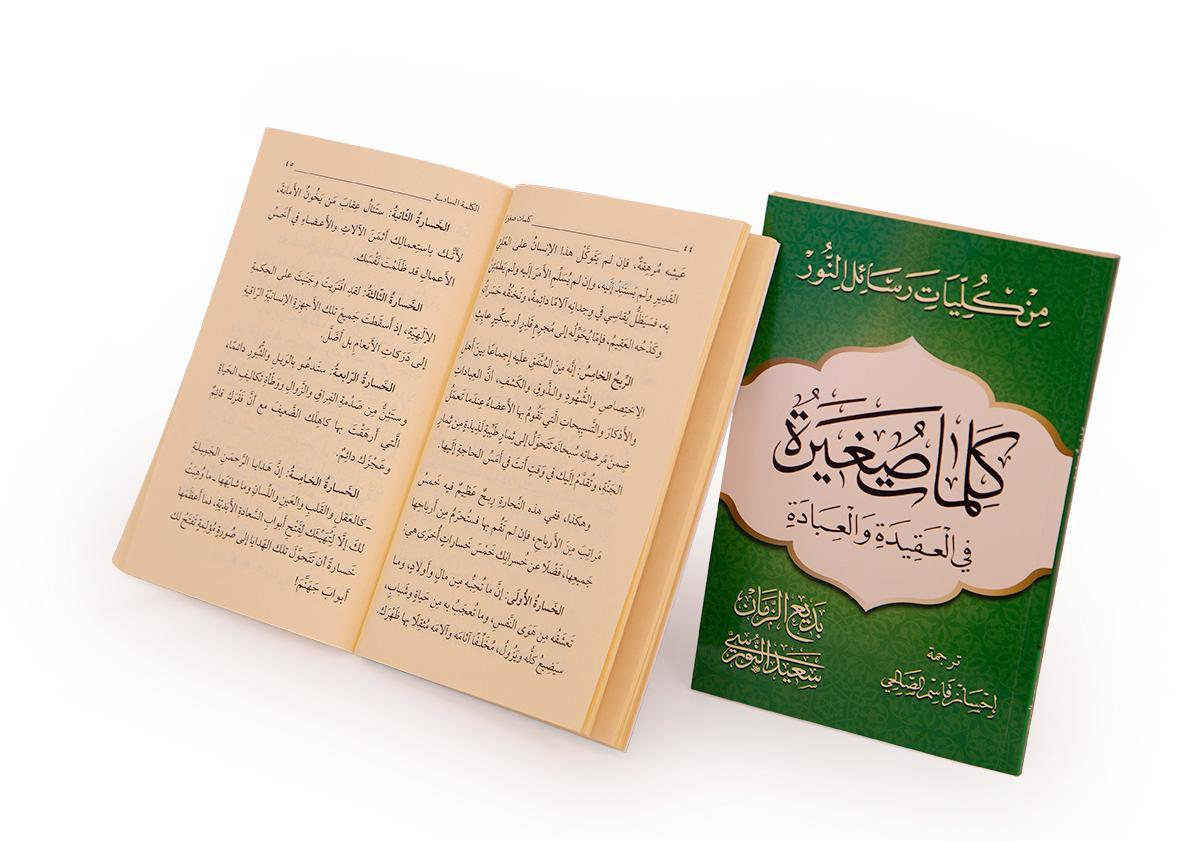 ٤٤
كلمات صغيرة
عَيشِه مُرهِقةٌ، فإن لم يَتَوكَّلْ هذا الإنسانُ على العَليِّ
القَديرِ ولم يَستَنِدْ إليه، وإن لم يُسَلِّم الأَمرَ إليه ولم يَطمَئِنَّ
به، فسَيَظَلُّ يُقاسي في وِجدانِه آلامًا دائمةً، وتَخنُقُه حَسَراتُه
وكَدْحُه العَقيمُ، فإمّا يُحَوِّلُه إلى مُجرِمٍ قَذِرٍ أو سِكِّيرٍ عابِثٍ.
الرِّبحُ الخامِسُ: إنَّه مِنَ المُتَّفَقِ عليه إجماعًا بينَ أهلِ
الاختِصاصِ والشُّهُودِ والذَّوقِ والكَشفِ، أنَّ العِباداتِ
والأذكارَ والتَّسبيحاتِ الَّتي تَقُومُ بها الأعضاءُ عندَما تَعمَلُ
ضِمنَ مَرضاتِه سبحانَه تَتَحوَّلُ إلى ثِمارٍ طَيِّبةٍ لَذيذةٍ مِن ثِمارِ
الجَنّةِ، وتُقدَّمُ إليك في وَقتٍ أنتَ في أَمَسِّ الحاجةِ إليها.
وهكذا، ففي هذه التِّجارةِ رِبحٌ عَظيمٌ فيه خَمسُ
مَراتِبَ مِنَ الأرباحِ، فإن لم تَقُم بها فستُحرَمُ مِن أَرباحِها
جَميعِها، فَضْلًا عن خُسرانِك خَمْسَ خَساراتٍ أُخرَى هي:
الخَسارةُ الأُولَى: إنَّ ما تُحِبُّه مِن مالٍ وأَولادٍ، وما
تَعشَقُه مِن هَوَى النَّفسِ، وما تُعجَبُ به مِن حَياةٍ وشَبابٍ،
سيَضيعُ كلُّه ويَزُولُ، مُخَلِّفًا آثامَه وآلامَه مُثقِلًا بها ظَهْرَك.
الكلمة السادسة
٤٥
الخَسارةُ الثّانيةُ: ستَنالُ عِقابَ مَن يَخُونُ الأَمانةَ،
لأَنَّك باستِعمالِك أَثمَنَ الآلاتِ والأَعضاءِ في أَخَسِّ
الأَعمالِ قد ظَلَمْتَ نَفْسَك.
الخَسارةُ الثّالثةُ: لقدِ افتَرَيتَ وجَنَيتَ على الحِكمةِ
الإلٰهِيّةِ، إذ أَسقَطتَ جَميعَ تلك الأَجهِزةِ الإنسانيّةِ الرّاقيةِ
إلى دَرَكاتِ الأَنعامِ بل أَضَلَّ.
الخَسارةُ الرّابعةُ: ستَدعُو بالوَيلِ والثُّبُورِ دائمًا،
وستَئِنُّ مِن صَدْمةِ الفِراقِ والزَّوالِ ووَطْأةِ تَكاليفِ الحَياةِ
الَّتي أَرهَقْتَ بها كاهِلَك الضَّعيفَ مع أنَّ فَقْرَك قائمٌ
وعَجْزَك دائمٌ.
الخَسارةُ الخامِسةُ: إنَّ هَدايا الرَّحمٰنِ الجَميلةَ
-كالعَقلِ والقَلبِ والعَينِ واللِّسانِ وما شابَهَها- ما وُهِبَتْ
لك إلّا لتُهَيِّئَك لِفَتحِ أَبوابِ السَّعادةِ الأَبَديّةِ، فما أَعظَمَها
خَسارةً أن تَتَحوَّلَ تلك الهَدايا إلى صُورةٍ مُؤلِمةٍ تَفتَحُ لك
أَبوابَ جَهنَّمَ!
من كليات رسائل النور
كلمات صغيرة
في العقيدة والعبادة
بديع الزمان
سعيد النورسي
ترجمة
إحسان قاسم الصالحي